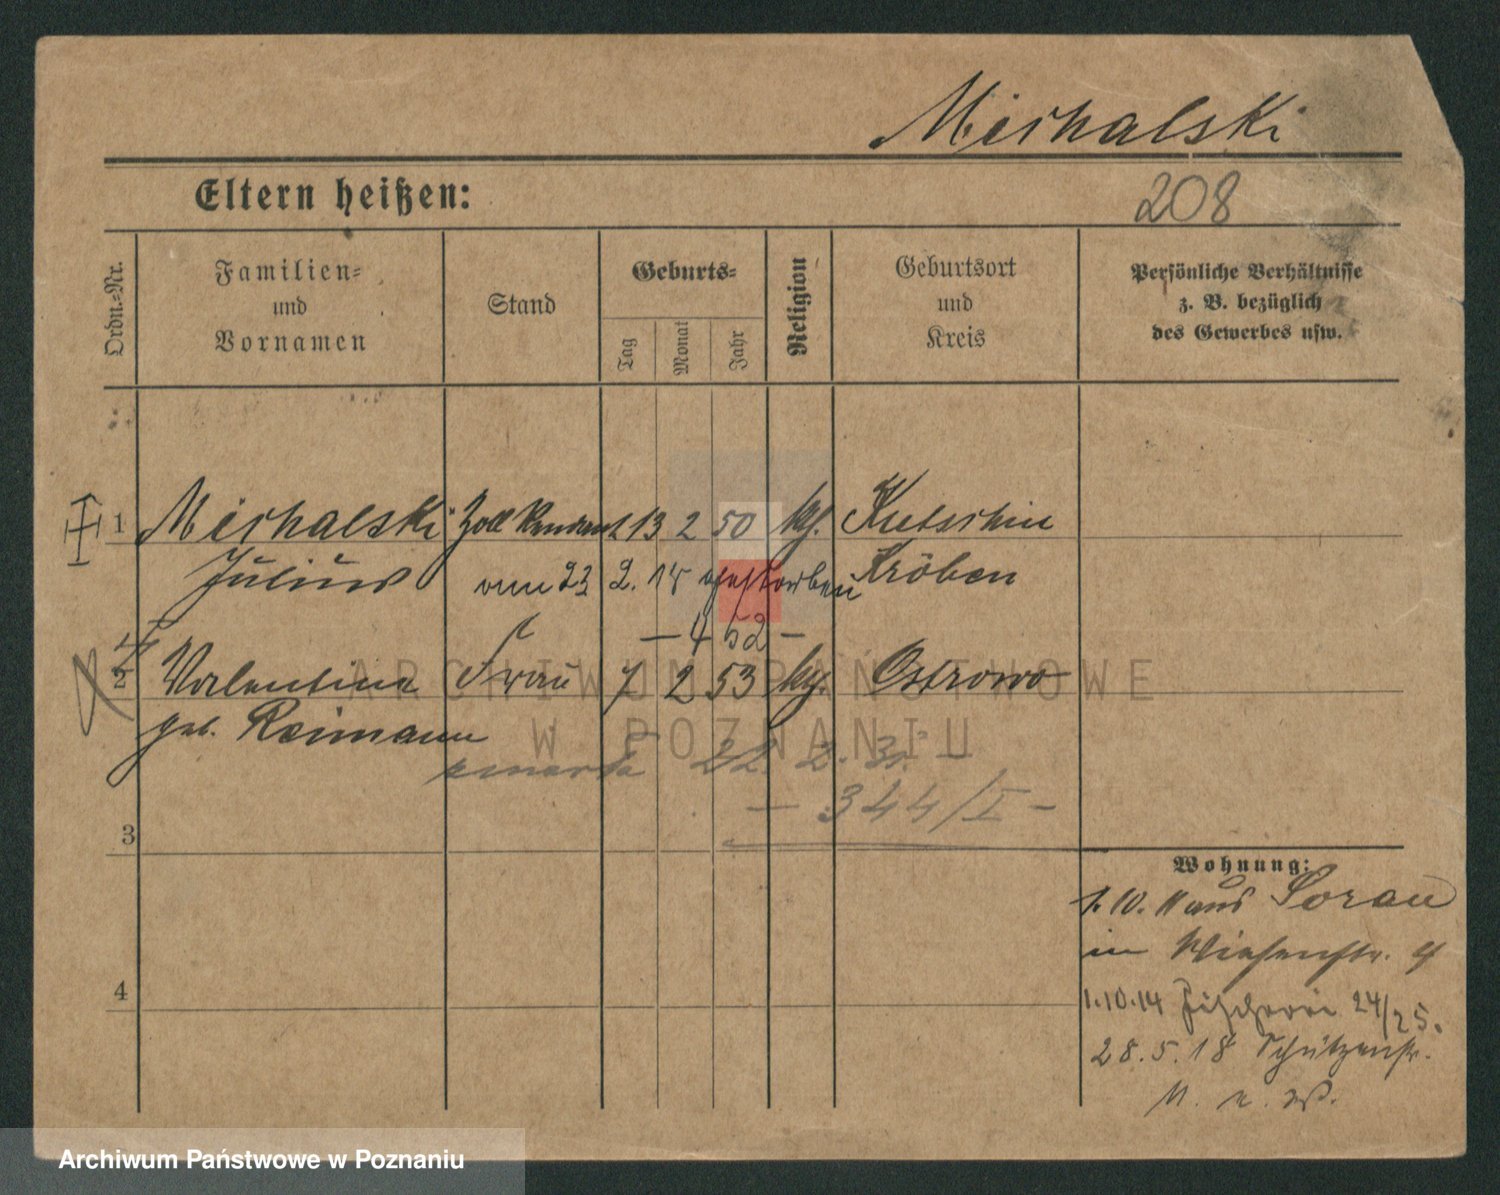 Michalski
Eltern heißen:
208
Ordn.-Nr.
Familien-
und
Vornamen
Stand
Geburts-
Tag
Monat
Jahr
Religion
Geburtsort
und
Kreis
Persönliche Verhältnisse
z. B. bezüglich
des Gewerbes usw.
1 Michalski Zoll Rendant 13 2 50 kth. Kutschin
Julius Kröben
am 23 2. 18 gestorben
— 4 52 —
2 Valentine Frau 7 2 53 kth. Ostrowo
geb. Reimann
zmarła 22. 2. 31.
— 344/I —
3
4
Wohnung:
1. 10. 11 aus Sorau
in Wiesenstr. 4
1.10.14 Fischerei 24/25.
28.5.18 Schützenstr.
ARCHIWUM PAŃSTWOWE
W POZNANIU
Archiwum Państwowe w Poznaniu